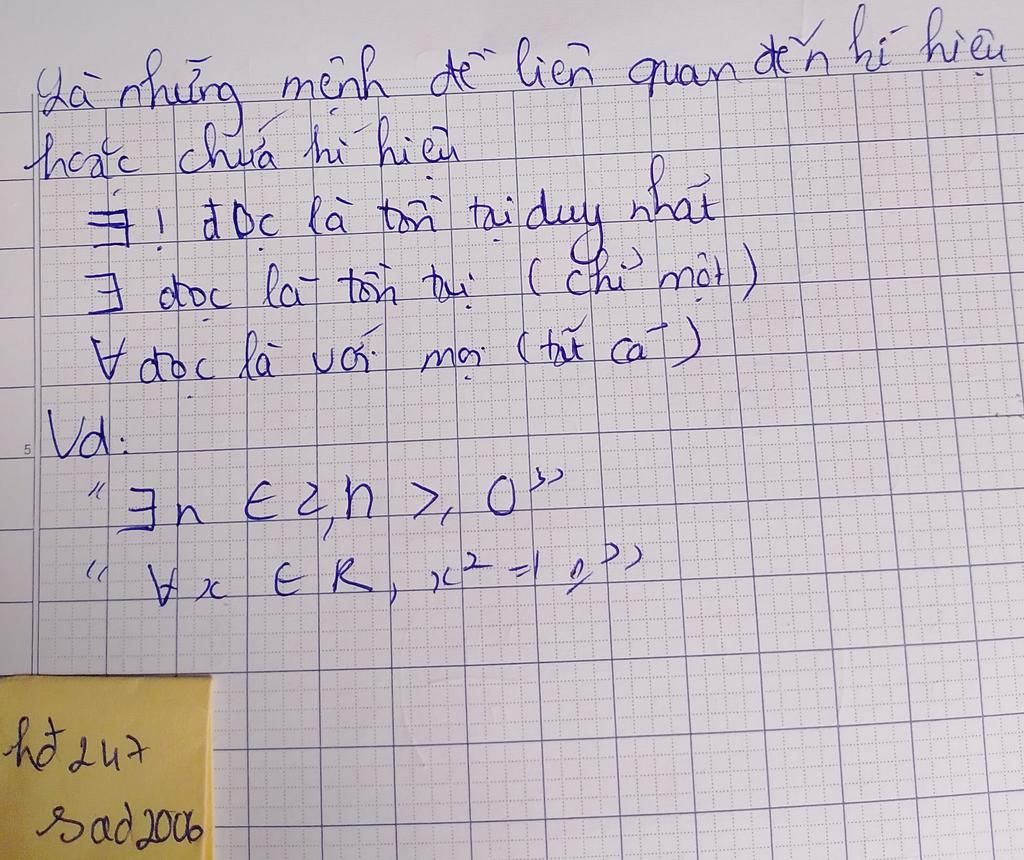 Là những mệnh đề liên quan đến kí hiệu
hoặc chứa kí hiệu
∃! đọc là tồn tại duy nhất
∃ đọc là tồn tại (chỉ một)
∀ đọc là với mọi (tất cả)
5
Vd:
"∃n ∈ Z, n ≥, 0"
"∀x ∈ R, x² = 1
hđ 247
sad2006